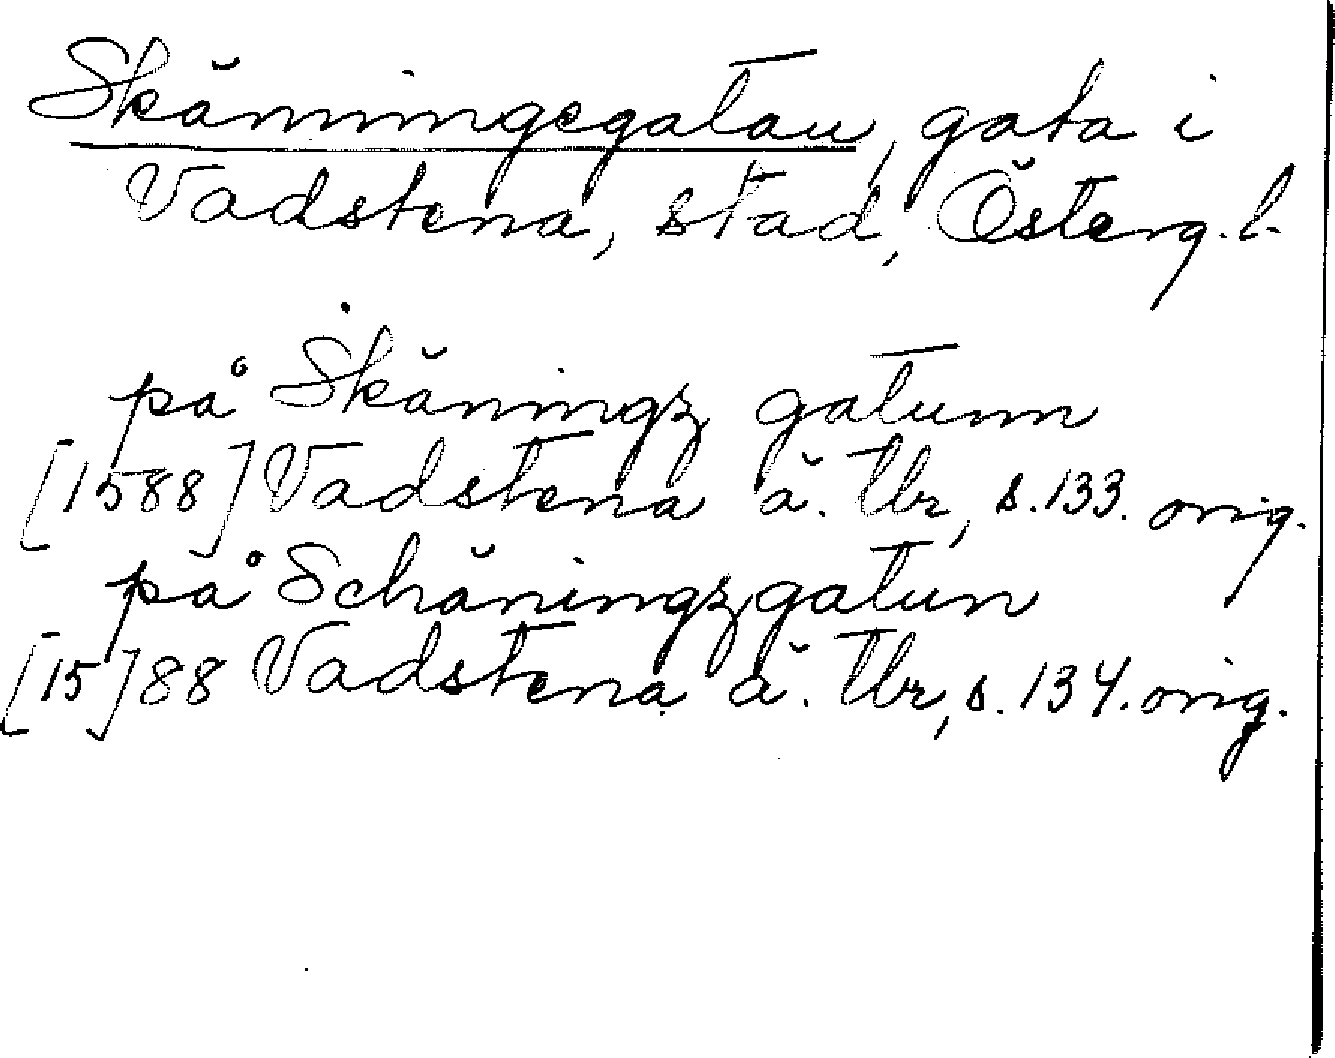 Skänningegatan, gata i
Vadstena, stad, Österg. l.
på Skäningz gatunn
[1588] Vadstena ä. Tbr, s. 133. orig.
på Schäningzgatun
[15]88 Vadstena ä. Tbr, s. 134. orig.